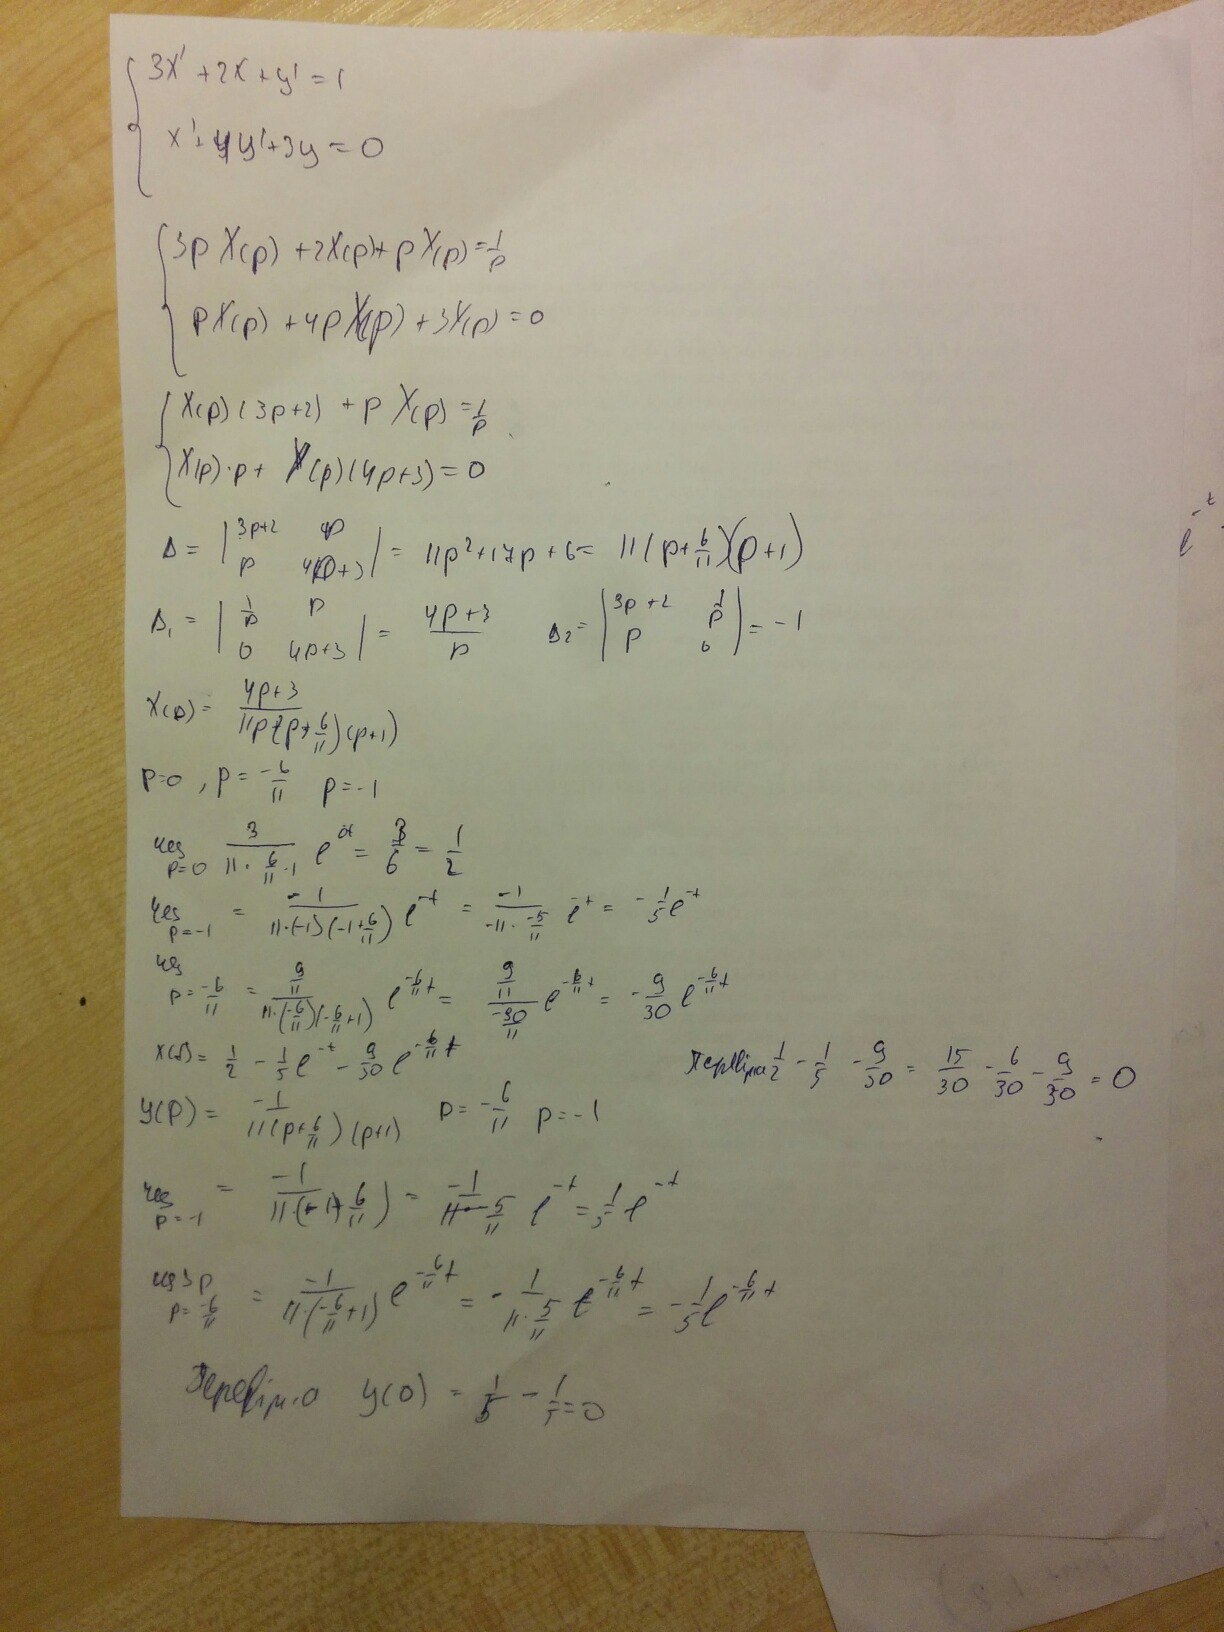 3x' + 2x + y' = 1
x' + 4y' + 3y = 0
3p X(p) + 2X(p) + p Y(p) = 1/p
p X(p) + 4p Y(p) + 3Y(p) = 0
X(p) (3p+2) + p Y(p) = 1/p
X(p)·p + Y(p)(4p+3) = 0
Δ = |3p+2 p; p 4p+3| = 11p² + 17p + 6 = 11(p + 6/11)(p+1)
Δ₁ = |1/p p; 0 4p+3| = (4p+3)/p Δ₂ = |3p+2 1/p; p 0| = -1
X(p) = (4p+3)/(11p(p + 6/11)(p+1))
p=0, p = -6/11 p = -1
p=0 3/(11·6/11·1) e^{0t} = 3/6 = 1/2
p=-1 = -1/(11·(-1)(-1+6/11)) e^{-t} = -1/(-11·-5/11) e^{-t} = -1/5 e^{-t}
p=-6/11 = (9/11)/(11·(-6/11)(-6/11+1)) e^{-6/11 t} = (9/11)/(-30/11) e^{-6/11 t} = -9/30 e^{-6/11 t}
= 1/2 - 1/5 e^{-t} - 9/30 e^{-6/11 t} 1/2 - 1/5 - 9/30 = 15/30 - 6/30 - 9/30 = 0
y(p) = -1/(11(p + 6/11)(p+1)) p = -6/11 p = -1
p=-1 = -1/(11(-1+6/11)) = -1/(11·-5/11) e^{-t} = 1/5 e^{-t}
p=-6/11 = -1/(11·(-6/11+1)) e^{-6/11 t} = -1/(11·5/11) e^{-6/11 t} = -1/5 e^{-6/11 t}
y(0) = 1/5 - 1/5 = 0